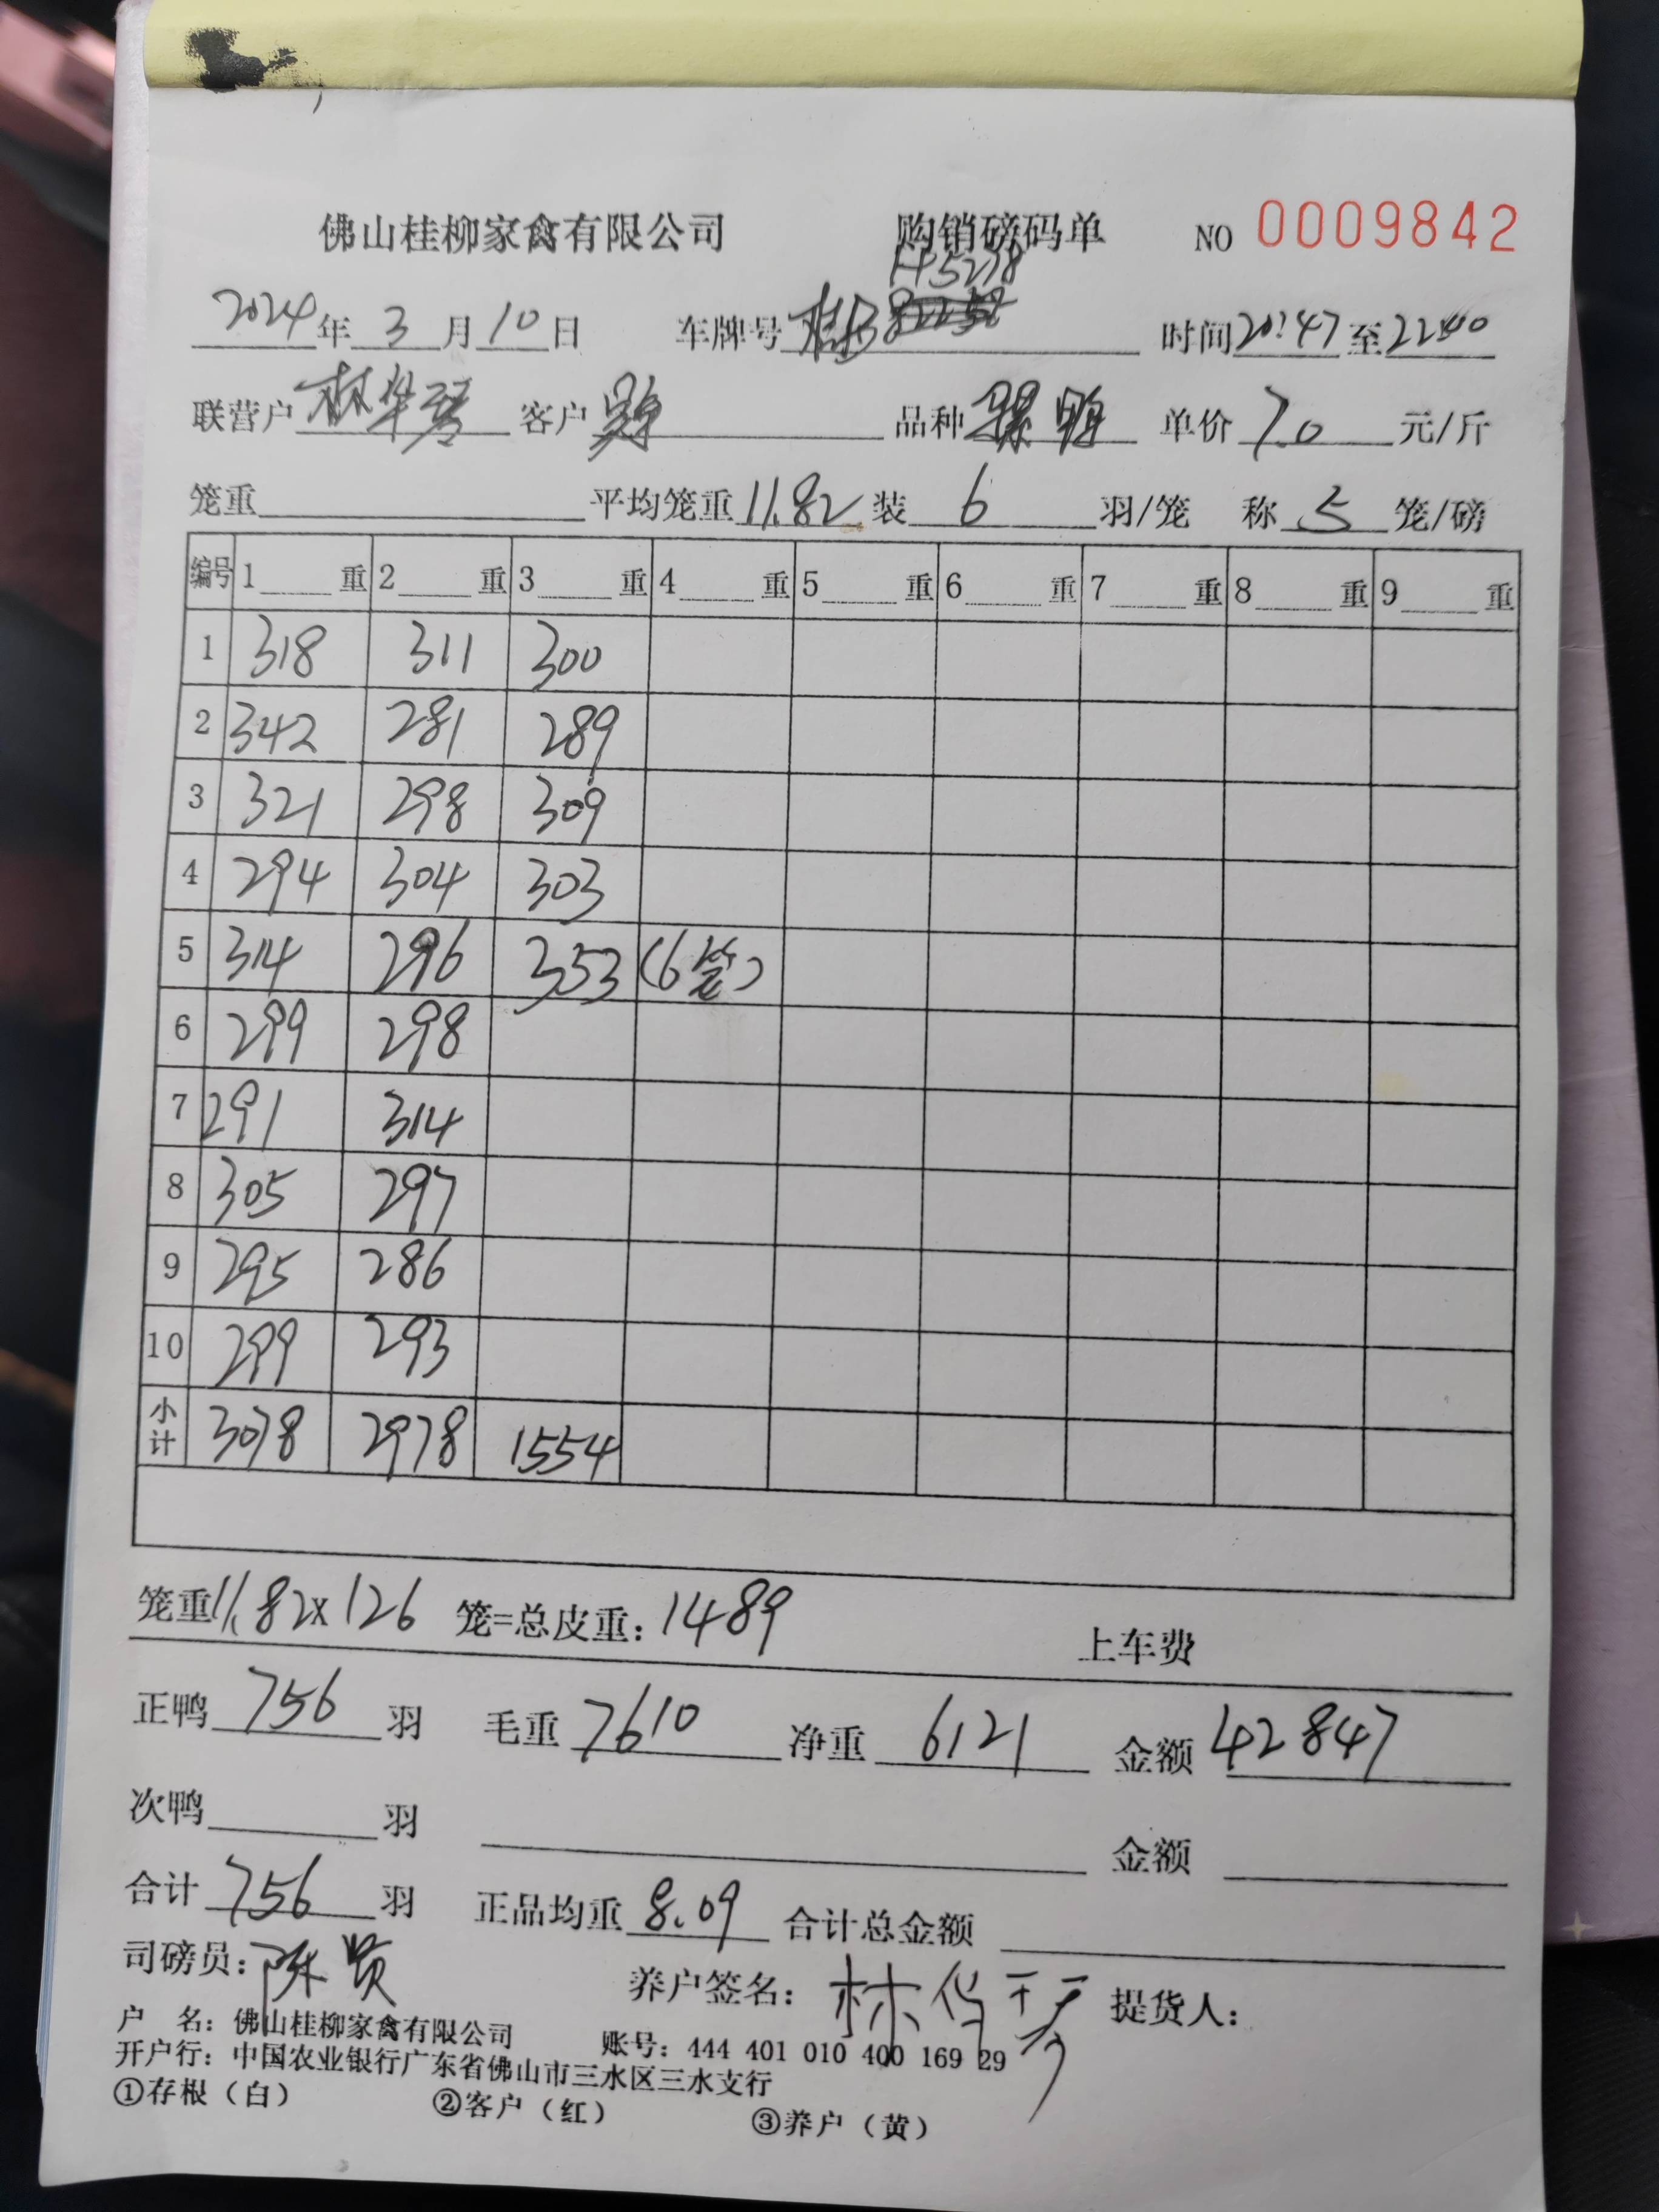 佛山桂柳家禽有限公司 购销磅码单 NO 0009842
H5278
2024年 3 月 10 日 车牌号 时间 20:47 至 22:00
联营户 林华琴 客户 品种 骡鸭 单价 7.0 元/斤
笼重 平均笼重 11.82 装 6 羽/笼 称 5 笼/磅
编号 1 重 2 重 3 重 4 重 5 重 6 重 7 重 8 重 9 重
1 318 311 300
2 342 281 289
3 321 298 309
4 294 304 303
5 314 296 353 (6笼)
6 299 298
7 291 314
8 305 297
9 295 286
10 299 293
小计 3078 2978 1554
笼重 11.82 x 126 笼=总皮重: 1489 上车费
正鸭 756 羽 毛重 7610 净重 6121 金额 42847
次鸭 羽 金额
合计 756 羽 正品均重 8.09 合计总金额
司磅员: 陈贤 养户签名: 林华琴 提货人:
户 名: 佛山桂柳家禽有限公司 账号: 444 401 010 400 169 29
开户行: 中国农业银行广东省佛山市三水区三水支行
①存根(白) ②客户(红) ③养户(黄)